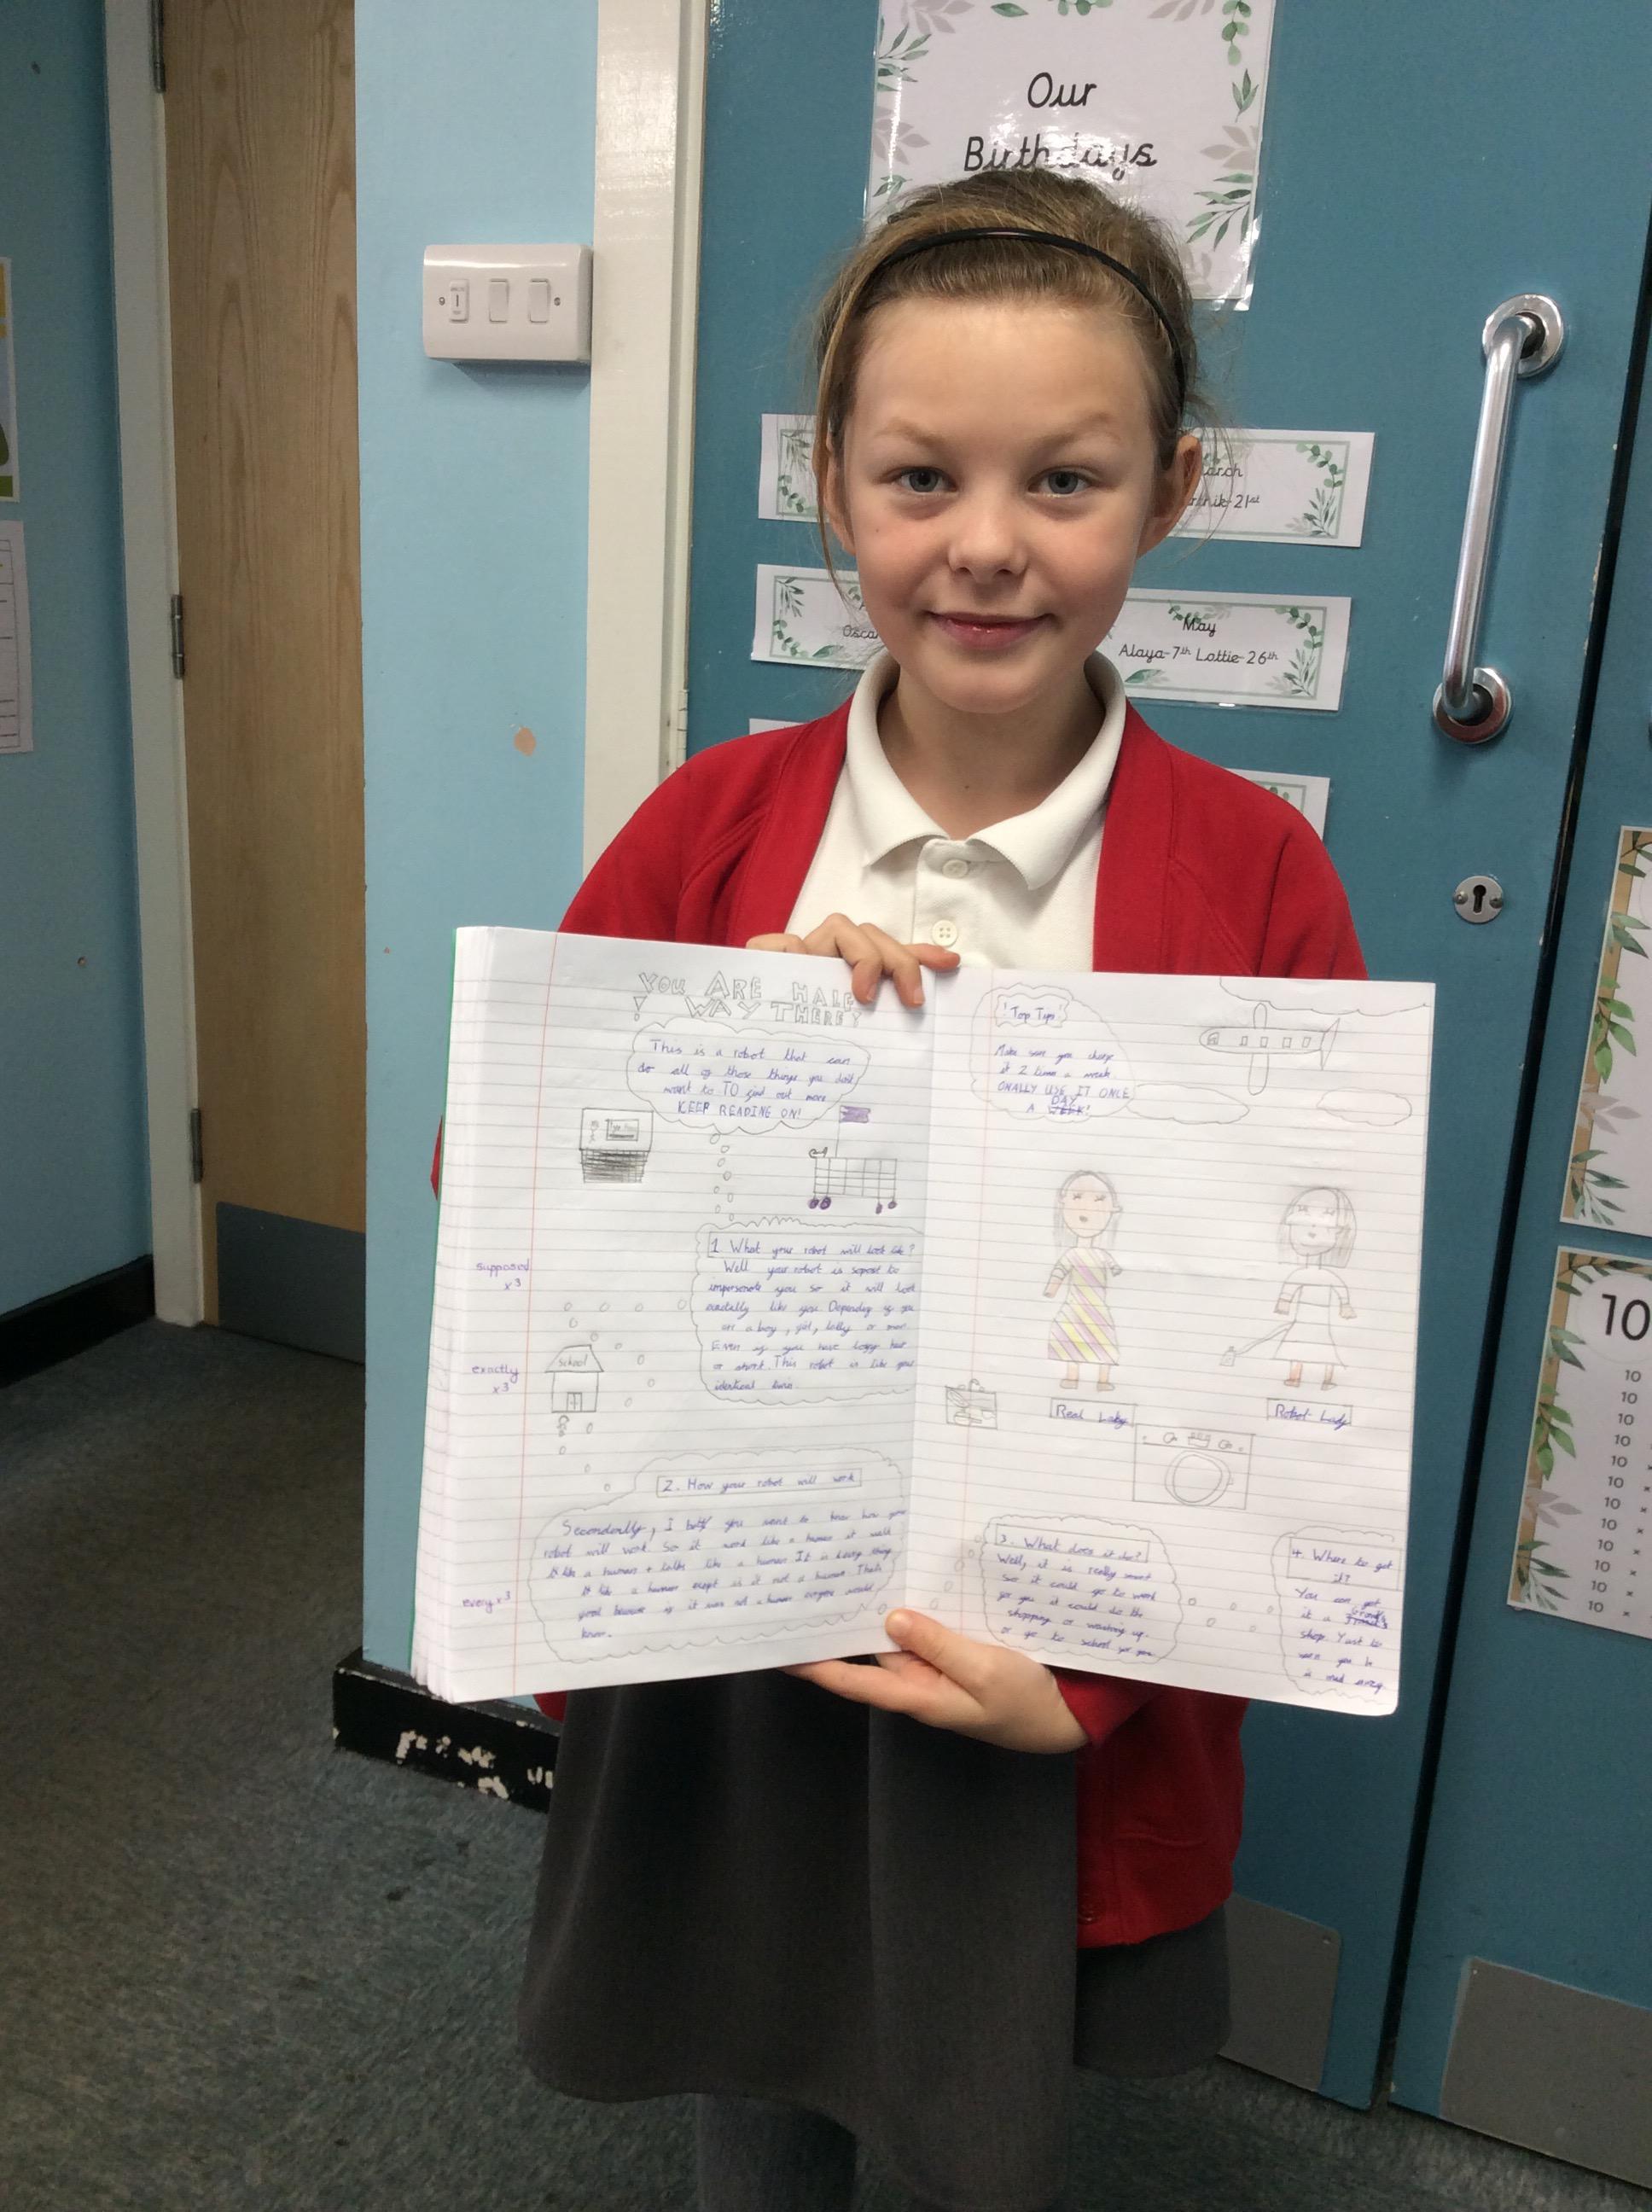 Our
Birthdays
arch
rthik-21st
Osca
May
Alaya-7th Lottie-26th
10
10
10
10
10
10
10
10
10
10
10
10
10
YOU ARE HALF
WAY THERE
This is a robot that can
do all of those things you don't
want to TO find out more
KEEP READING ON!
1 What your robot will look like?
Well your robot is sopost to
impersonate you so it will look
exactally like you Depending if you
are a boy, girl,
Even if you have
or short. This robot is like your
identical twin.
supposed
x3
exactly
x3
school
2. How your robot will work
Secondonlly, I you want to know how your
robot will work. So it work like a human it
like a human + talks like a human It is
like a human exept is it not a human Thats
good because if it was not a human would
know.
every x3
'Top Tip'
Make sure you charge
it 2 times a week.
ONALLY USE IT ONCE
DAY
A WEEK!
Real Lady
Robot Lady
3. What does it do?
Well, it is really smart
so it could go to work
for you it could do the
shopping or washing up.
or go to school for you
4. Where to get
it?
You can get
it a
shop. Just to
you
is